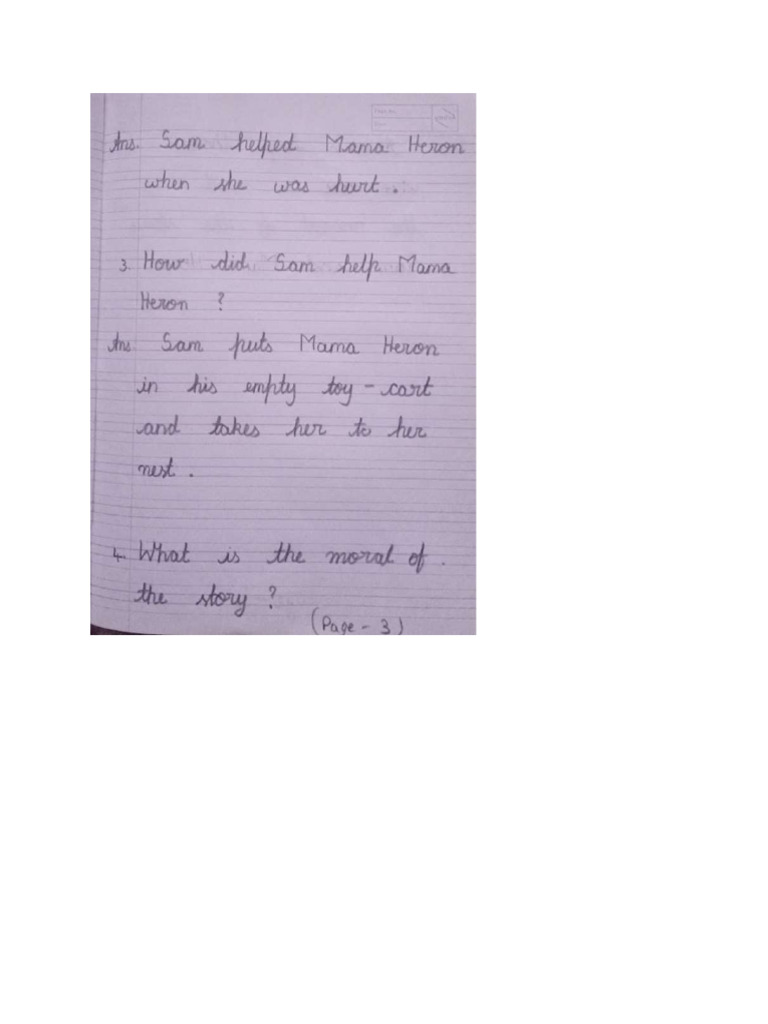 Ans. Sam helped Mama Heron
when she was hurt.
3. How did Sam help Mama
Heron ?
Ans Sam puts Mama Heron
in his empty toy - cart
and takes her to her
nest.
4. What is the moral of.
the story ?
(Page - 3)